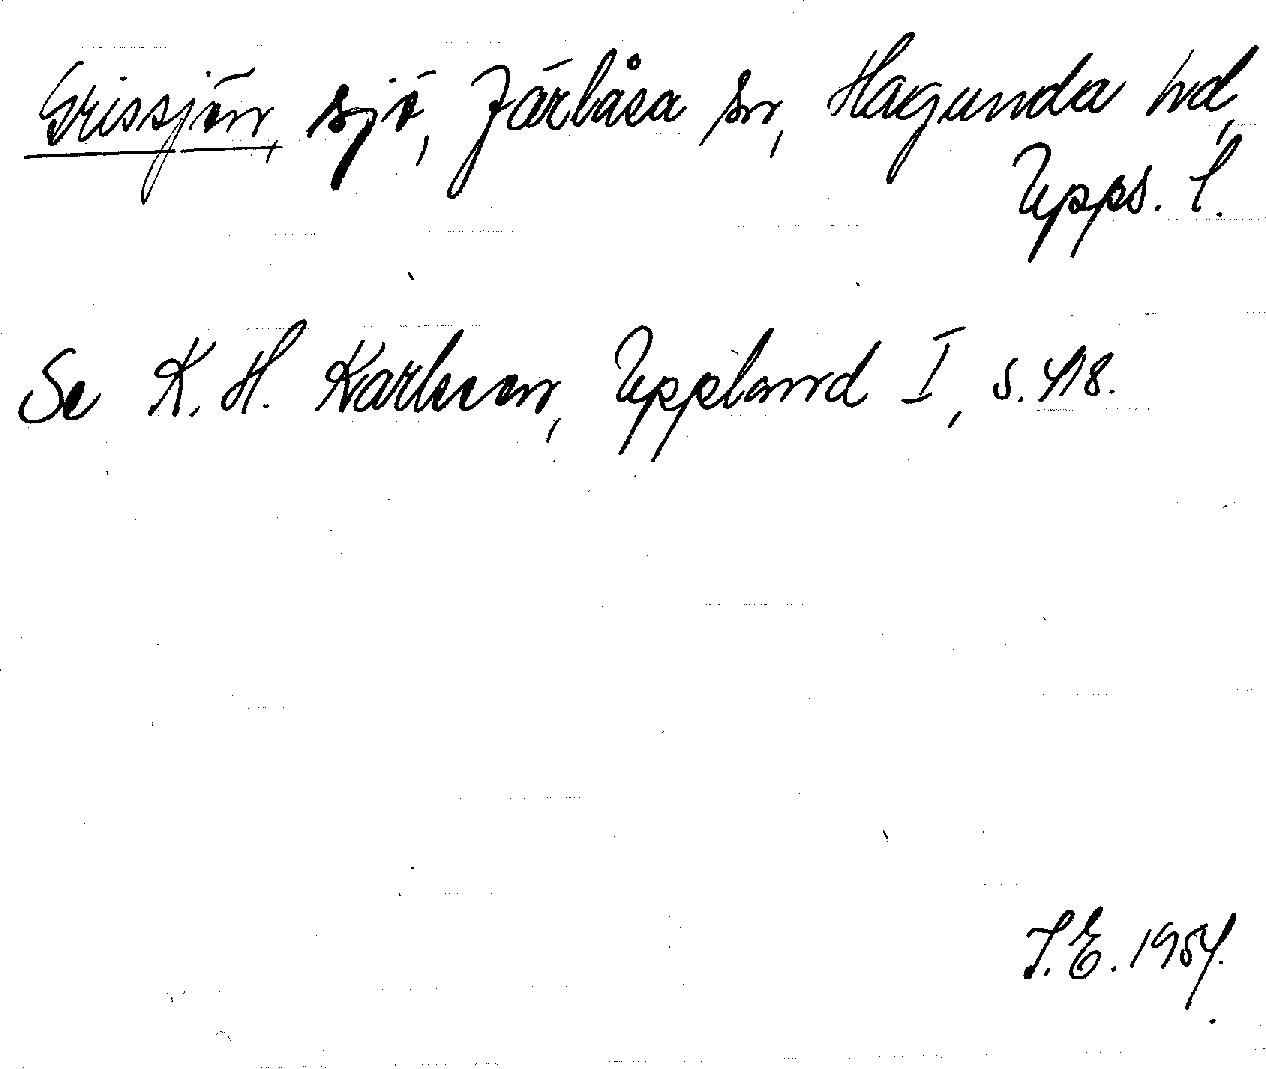 Grissjön, sjö, Järlåsa sn, Hagunda hd,
Upps. l.
Se K. H. Karlsson, Uppland I, s. 418.
I. E. 1954.